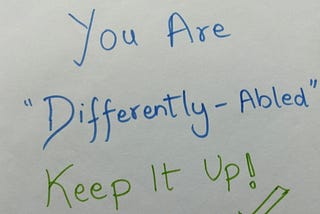 You Are
"Differently-Abled"
Keep It Up!